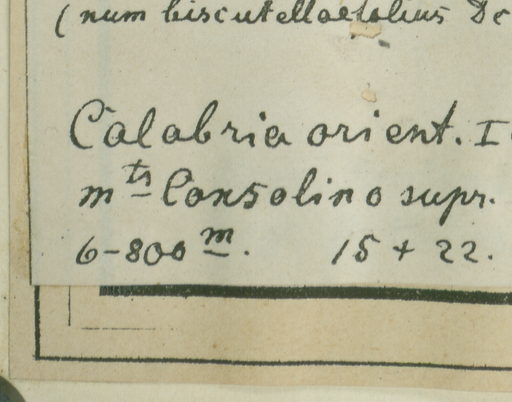 (num biscutellaefolius De
Calabria orient. I
mts Consolino supr.
6-800 m. 15 + 22.